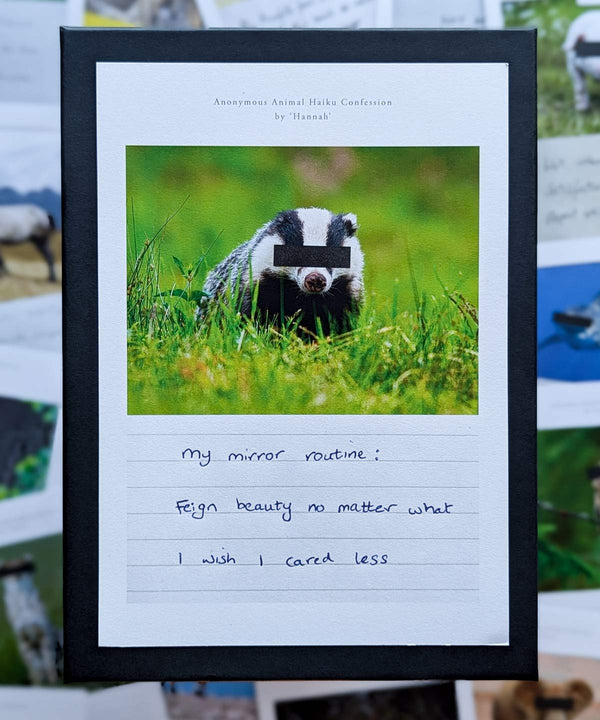 Anonymous Animal Haiku Confession
by 'Hannah'
My mirror routine:
Feign beauty no matter what
I wish I cared less